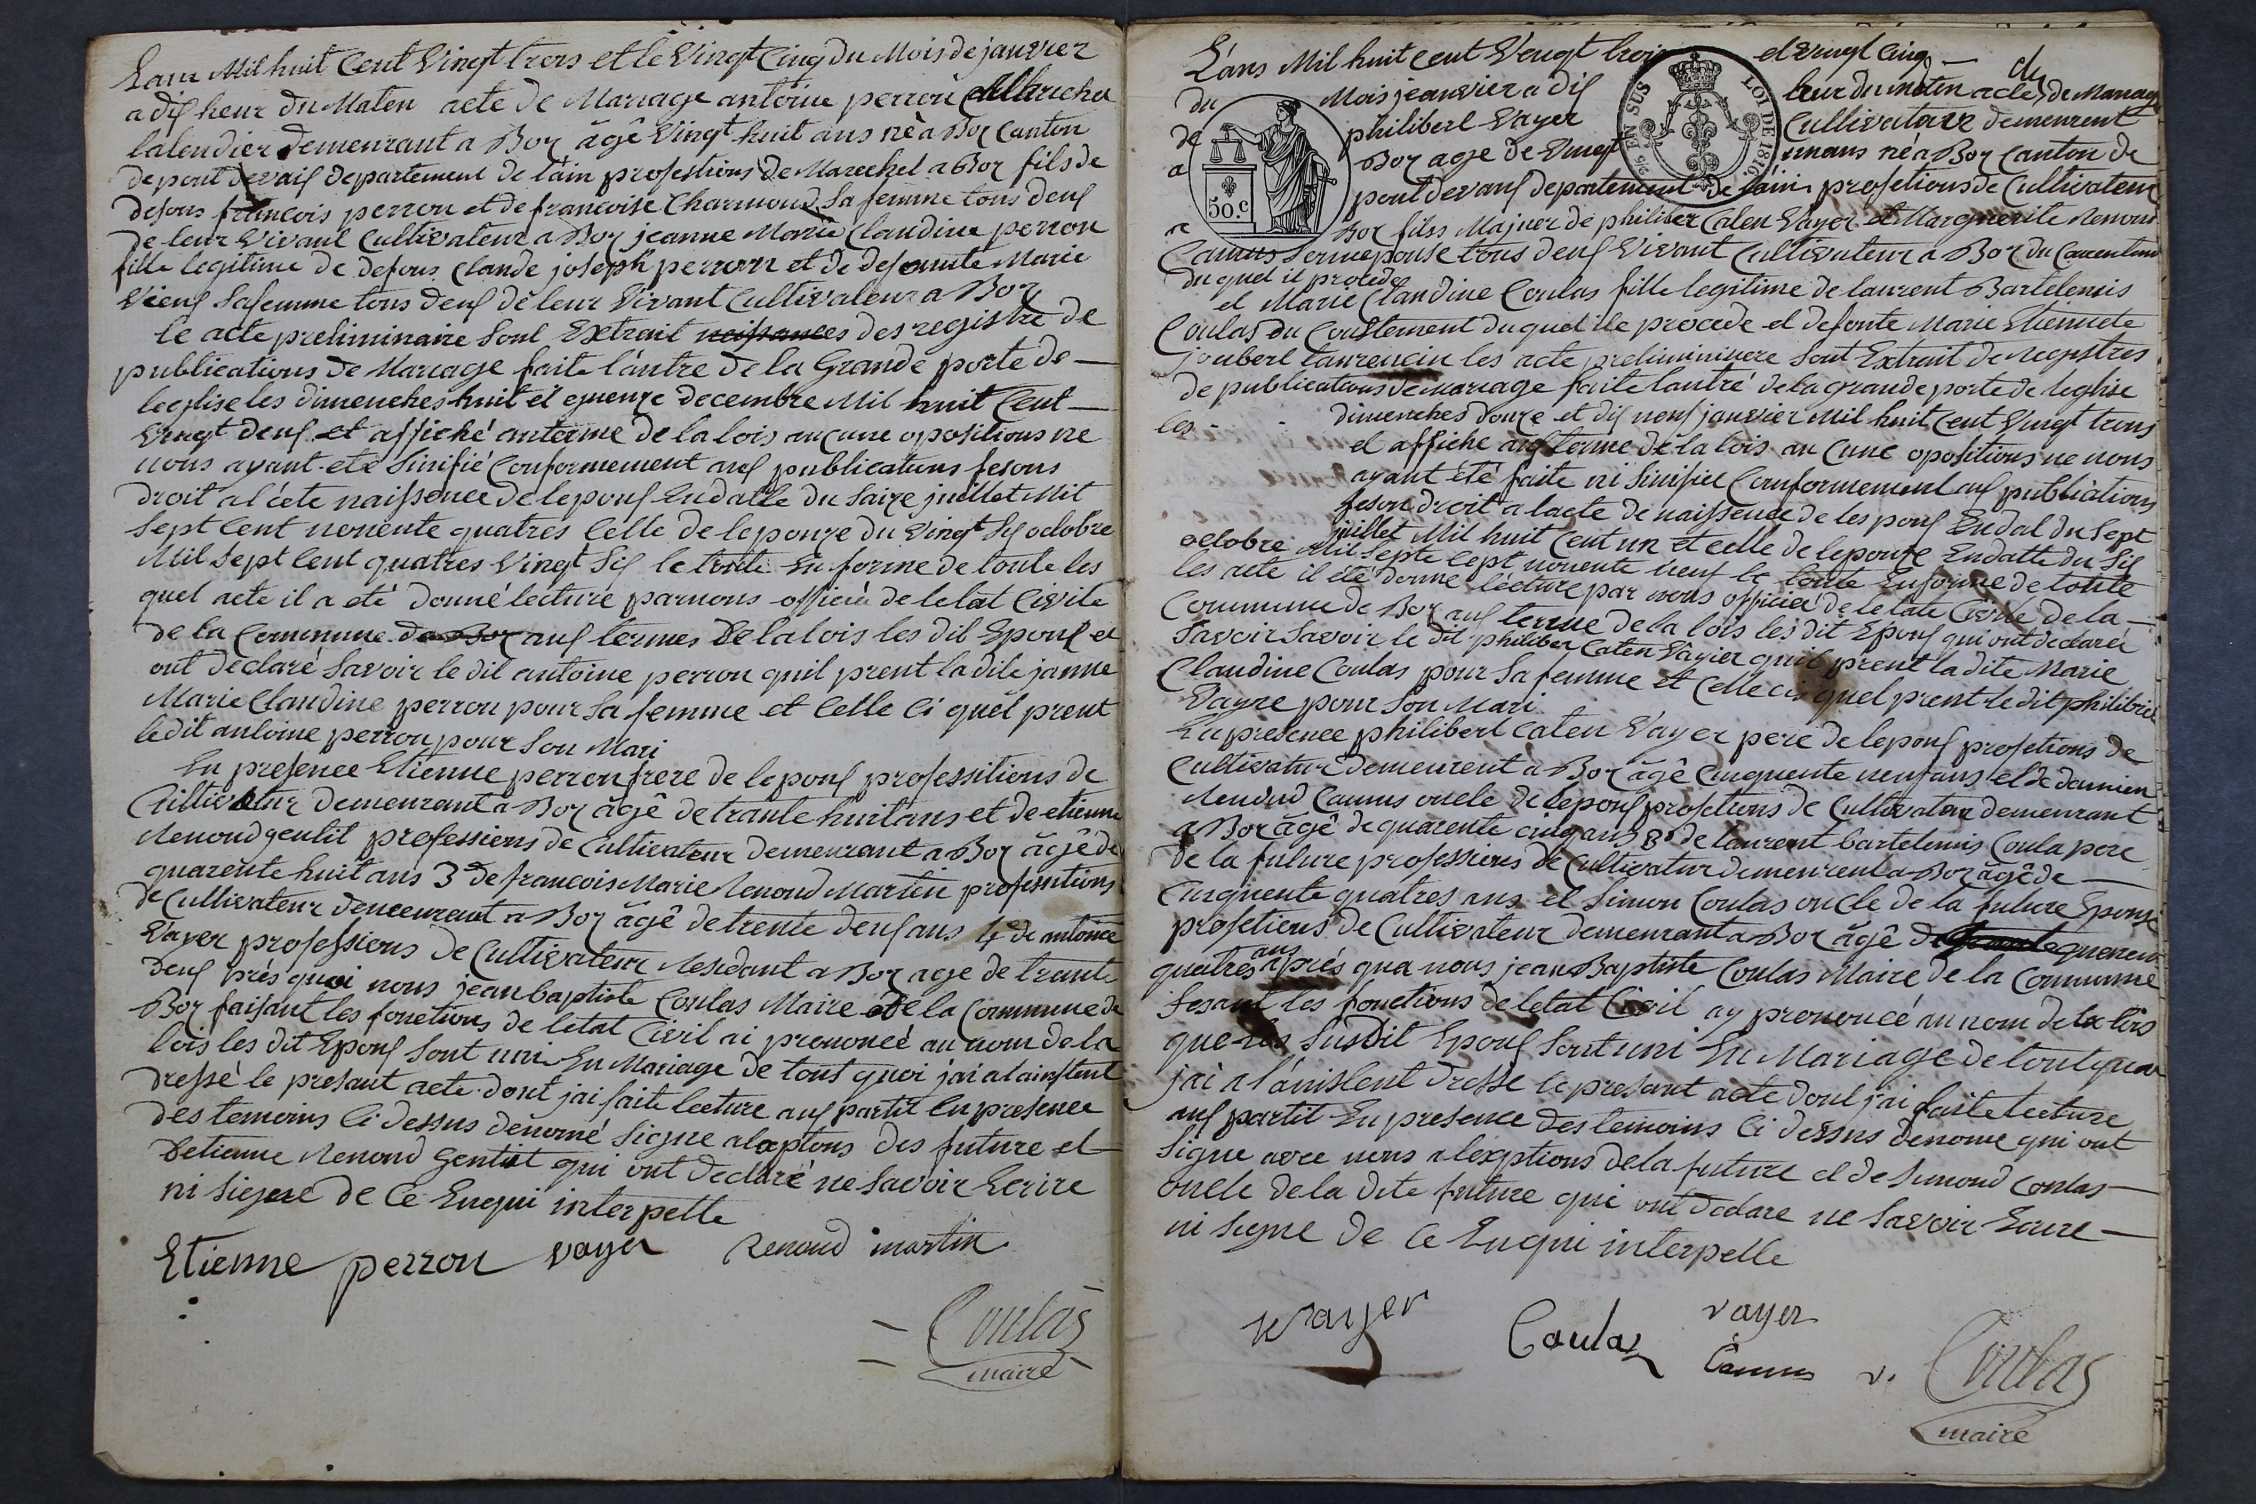 Lans Mil huit Cent Vingt trois et le Vingt Cinq du Mois de janvier
a dis heur du Maten acte de Mariage antoine perron
demeurant a Boz âgé Vingt huit ans né a Boz Canton
de pont devaus departement de l'ain professtions de Marechel a Boz fils de
defons francois perron et de francoise Charmond Sa femme tous deus
de leur Vivant Cultivateur a Boz jeanne Marie Claudine perron
fille legitime de defons Claude joseph perron et de defounte Marie
Vieus Safemme tous deus de leur Vivant Cultivateur a Boz
le acte preliminaire Sont Extrait naissances des registre de
publications de Mariage faite lantre de la Grande porte de
leglise les dimenches huit et quenze decembre Mil huit Cent
Vingt deus et affiché anterme de la lois aucune opositions ne
nous ayant eté Sinifié Conformement aus publications fesons
droit a l'acte naissence de lepous Endatte du Saize juillet Mil
Sept Cent nonente quatres Celle de lepouze du Vingt Sis octobre
Mil Sept Cent quatres Vingt Sis le toute En forme de toute les
quel acte il a eté donné lecture parnous officié de letat Civile
de la Commune de Boz aus termes De la lois les dit Epous et
ont déclaré Savoir le dit antoine perron quil prent la dite janne
Marie Claudine perron pour Sa femme et Celle Ci quel prent
ledit antoine perron pour Son Mari
En présence Etienne perron frere de lepous professitions de
Cultivatur demeurant a Boz âgé de trante huit ans et de etienne
Renoud gentit professions de Cultivateur demeurant a Boz âgé de
quarente huit ans 3° de francois Marie Renoud Martin professitions
de Cultivateur demeurant a Boz âgé de trente deus ans 4 de antoine
Vayer professions de Cultivateur Residant a Boz age de trante
deus près quoi nous jean baptiste Coulas Maire de la Commune de
Boz faisant les fonetions de letat Civil ai prononcé au nom de la
lois les dit Epous Sont uni En Mariage de tout quoi jai a lainstent
dressé le presant acte dont jai faite lecture aus partit En presence
des temoins Ci dessus denomé Signe a lexptions des future et
detienne Renoud Gentit qui ont declaré ne Savoir Ecrire
ni Signe de Ce Enqui interpelle
Etienne perron vayer Renoud martin
Coulas
maire
L'ans Mil huit Cent Vengt trois et Vingt Cinq
du Mois jeanvier a dis heur du maten acte de Mariage
de philibert Vayer Cultivateur demeurent
a Boz age de Vingt un ans né a Boz Canton de
pont devaus departement de l'ain profetions de Cultivateur
a Boz fils Majuer de philiber Caten Vayer et Marguerite Renoud
Camus Sonnepouse tous deus Vivant Cultivateur a Boz du Consentem
du quel il procede
et Marie Claudine Coulas fille legitime de laurent Bartelemis
Coulas du Coustement du quel ile procede et defonte Marie Etiennete
joubert laurencin les acte preliminivere Sont Extrait de registres
de publications de mariage faite lantré de la grande porte de leglise
les dimenches douze et dis neuf janvier Mil huit Cent Vingt trois
et affiche aus terme de la lois au Cune opositions ne nous
ayant été faite ni Sinifiée Conformement aus publications
feson droit a lacte de naissence de les pous En dat du Sept
juillet Mil huit Cent un et celle de lepouze Endatte du Sis
octobre Mil Septe Cept nonente neuf le toute Enforme de toute
les acte il été donne lécture par nous officier de le tate Civile de la
Commune de Boz aus terme de la lois les dit Epous qui ont declarée
Savoir Savoir le dit philiber Caten Vayier quil prent la dite Marie
Claudine Coulas pour Sa femme et Celle ci quel prent le dit philibrie
Vayre pour Son Mari
En presence philibert Caten Vayer pere de lepous profetions de
Cultivatur demeurent a Boz âgé Cinquente neuf ans et de damien
Renoud Camus oncle de lepous profetions de Cultivateur demeurant
a Boz âgé de quarente cinq ans 3° de laurent bartelemis Coula pere
de la future professions de Cultivatur demeurent a Boz âgé de
Cinquente quatres ans et Simon Coulas oncle de la future Epouse
profetions de Cultivateur demeurant a Boz âgé de quarente
quatres ans après qua nous jean Baptiste Coulas Maire de la Commune
fesant les fonetions de letat Civil ay prononcé au nom de la lois
que les Susdit Epous Sont uni En Mariage de tout quoi
jai a l'ainstent dresse le presant acte dont jai faite lecture
aus partit En presence des temoins Ci dessus denome qui ont
Signe avec nous a lexptions de la future et de Simond Coulas
oncle de la dite future qui ont declare ne Savoir Ecrire
ni Signe de Ce Enqui interpelle
vayer Coulas vayer
Camus
Coulas
maire
50.C
25 EN SUS LOI DE 1816